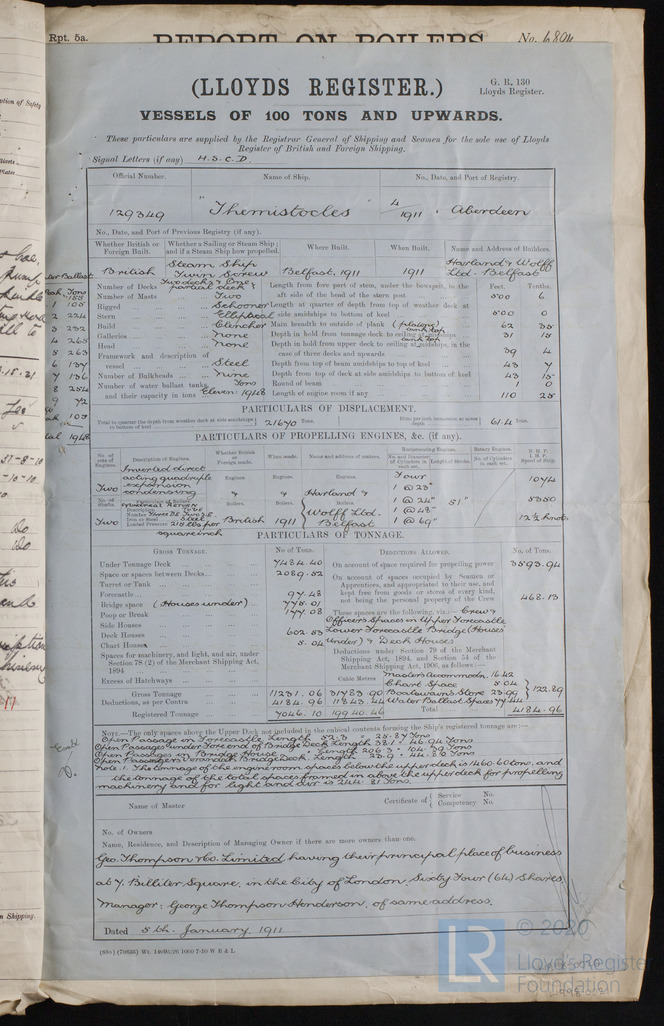 Rpt. 5a.
REPORT ON BOILERS
No. 6804
(LLOYDS REGISTER.)
G. R. 130
Lloyds Register.
VESSELS OF 100 TONS AND UPWARDS.
These particulars are supplied by the Registrar General of Shipping and Seamen for the sole use of Lloyds
Register of British and Foreign Shipping.
Signal Letters (if any) H.S.C.D.
Official Number.
Name of Ship.
No., Date, and Port of Registry.
129349
"Themistocles"
4/1911 . Aberdeen
No., Date, and Port of Previous Registry (if any).
Whether British or Foreign Built.
Whether a Sailing or Steam Ship; and if a Steam Ship how propelled.
Where Built.
When Built.
Name and Address of Builders.
British
Steam Ship Twin Screw
Belfast, 1911
1911
Harland & Wolff Ltd. Belfast
Number of Decks Two decks & One partial deck
Number of Masts Two
Rigged Schooner
Stern Elliptical
Build Clencher
Galleries None
Head None
Framework and description of vessel Steel
Number of Bulkheads Nine
Number of water ballast tanks, and their capacity in tons Eleven. 1948 Tons
Feet. Tenths.
Length from fore part of stem, under the bowsprit, to the aft side of the head of the stern post 500 6
Length at quarter of depth from top of weather deck at side amidships to bottom of keel 500 0
Main breadth to outside of plank (plating) 62 35
Depth in hold from tonnage deck to tank top amidships 31 15
Depth in hold from upper deck to tank top amidships, in the case of three decks and upwards 39 4
Depth from top of beam amidships to top of keel 43 7
Depth from top of deck at side amidships to bottom of keel 43 15
Round of beam 1 0
Length of engine room if any 110 25
PARTICULARS OF DISPLACEMENT.
Total to quarter the depth from weather deck at side amidships to bottom of keel 21670 Tons.
Ditto per inch immersion at same depth 61.4 Tons.
PARTICULARS OF PROPELLING ENGINES, &c. (if any).
No. of sets of Engines.
Description of Engines.
Whether British or Foreign made.
When made.
Name and address of makers.
Reciprocating Engines.
No. and Diameter of Cylinders in each set.
Length of Stroke.
Rotary Engines.
No. of Cylinders in each set.
N. H. P.
I. H. P.
Speed of Ship.
Two
Inverted direct acting quadruple expansion condensing
Engines. Engines. Engines.
Harland &
Wolff Ltd.
Belfast
Four
1 @ 23"
1 @ 24"
1 @ 48"
1 @ 69"
51"
1074
5350
12½ knots
Boilers. Boilers. Boilers.
Two
Iron or Steel Steel
Loaded Pressure 215 lbs per square inch
British
1911
PARTICULARS OF TONNAGE.
GROSS TONNAGE. No. of Tons.
Under Tonnage Deck 7484.40
Space or spaces between Decks 2089.52
Turret or Tank
Forecastle 97.48
Bridge space (Houses under) 775.01
Poop or Break 177.08
Side Houses
Deck Houses 602.53
Chart Houses 5.04
Spaces for machinery, and light, and air, under Section 78 (2) of the Merchant Shipping Act, 1894
Excess of Hatchways
Cubic Metres
Gross Tonnage 11231.06 31783.90
Deductions, as per Contra 4184.96 11843.44
Registered Tonnage 7046.10 19940.46
DEDUCTIONS ALLOWED. No. of Tons.
On account of space required for propelling power 3593.94
On account of spaces occupied by Seamen or Apprentices, and appropriated to their use, and kept free from goods or stores of every kind, not being the personal property of the Crew 468.13
These spaces are the following, viz.:— Crew & Officers Spaces in Upper Forecastle Lower Forecastle Bridge (Houses under) & Deck Houses
Deductions under Section 79 of the Merchant Shipping Act, 1894, and Section 54 of the Merchant Shipping Act, 1906, as follows:—
Masters Accommodn. 16.42
Chart Space 5.04
Boatswain's Store 23.99
Water Ballast Spaces 77.44
122.89
Total 4184.96
NOTE.—The only spaces above the Upper Deck not included in the cubical contents forming the Ship's registered tonnage are:—
Open Space in Forecastle, Length 52.3 = 25.87 Tons
Open Passages under fore end of Bridge Deck, Length 38.1 = 46.94 Tons
Open Passages in Bridge House . Length 206.3 = 104.39 Tons
Open Passengers Verandah Bridge Deck. Length 23.9 = 44.86 Tons
Note 1. The tonnage of the engine room spaces below the upper deck is 1460.60 tons, and
the tonnage of the total spaces framed in above the upper deck for propelling
machinery and for light and air is 244.81 Tons.
Name of Master
Certificate of { Service No.
Competency No.
No. of Owners
Name, Residence, and Description of Managing Owner if there are more owners than one.
Geo. Thompson & Co. Limited having their principal place of business
at 7. Billiter Square, in the City of London. Sixty Four (64) Shares
Manager: George Thompson Henderson, of same address.
Dated 5th. January 1911
© 2020
Lloyd's Register
Foundation
LR